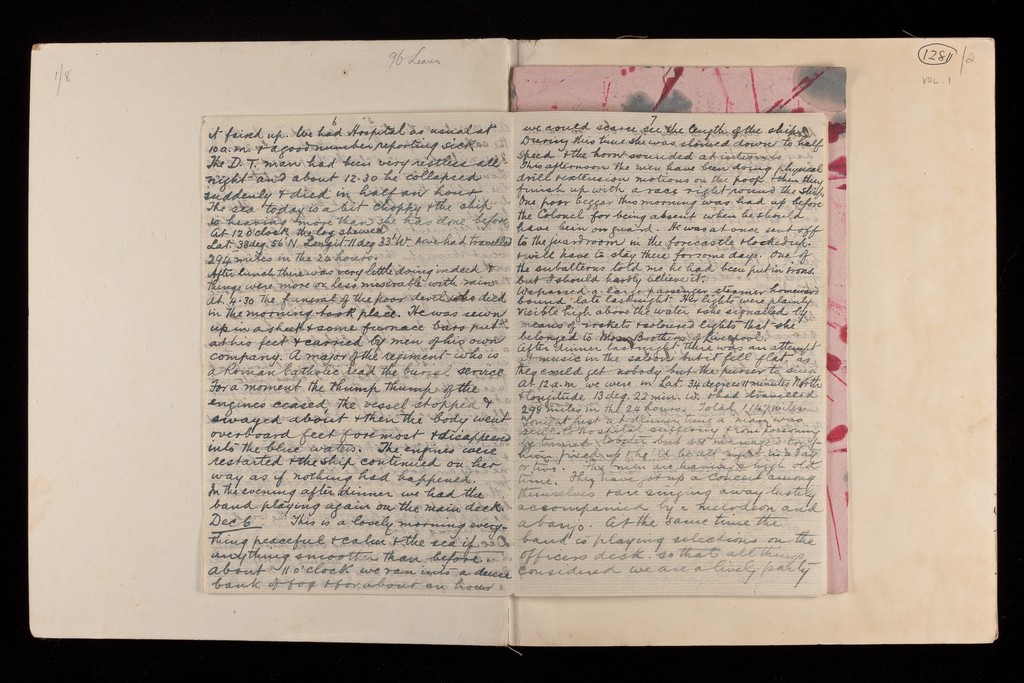 1/8
96 Leaves
1281/2
VOL. 1
6
it faired up. We had Hospital as usual at
10 a.m. & a good number reporting sick
The D.T. man had been very restless all
night and about 12.30 he collapsed
suddenly & died in half an hour
The sea today is a bit choppy & the ship
is heaving more than she has done before
At 12 o'clock the log shewed
Lat. 38 deg. 56' N. Longit. 11 deg 33' W. & we had travelled
294 miles in the 24 hours.
After lunch there was very little doing indeed &
things were more or less miserable with rain
At 4.30 the funeral of the poor devil who died
in the morning took place. He was sewn
up in a sheet & some furnace bars put
at his feet & carried by men of his own
company. A major of the regiment who is
a Roman Catholic read the burial service
For a moment the thump thump of the
engines ceased, the vessel stopped &
swayed about & then the body went
overboard feet foremost & disappeared
into the blue water. The engines were
restarted & the ship continued on her
way as if nothing had happened.
In the evening after dinner we had the
band playing again on the main deck.
Dec 6 This is a lovely morning every-
thing peaceful & calm & the sea if
anything smoother than before.
about 11 o'clock we ran into a dense
bank of fog & for about an hour
7
we could scarce see the length of the ship.
During this time she was slowed down to half
speed & the horn sounded at intervals
This afternoon the men have been doing physical
drill & extension motions on the poop & then they
finish up with a race right round the ship.
One poor beggar this morning was had up before
the Colonel for being absent when he should
have been on guard. He was at once sent off
to the guard room in the forecastle & locked up.
& will have to stay there for some days. One of
the subalterns told me he had been put in irons.
but I should hardly believe it.
We passed a large passenger steamer homeward
bound late last night. Her lights were plainly
visible high above the water & she signalled by
means of rockets & coloured lights that she
belonged to Moss Brothers of Liverpool.
After dinner last night there was an attempt
at music in the saloon but it fell flat as
they could get nobody but the purser to sing
At 12 a.m. we were in Lat. 34 degrees 11 minutes North
& longitude 13 deg. 22 min. W. & had travelled
298 miles in the 24 hours. Total 1,147 miles
Tonight just at dinner time a man was
sent to hospital suffering from poisoning
by tinned lobster but we managed to get
him fixed up & he'll be all right in a day
or two. The men are having a high old
time. They have got up a concert among
themselves & are singing away lustily
accompanied by a melodeon and
a banjo. At the same time the
band is playing selections on the
Officers deck so that all things
considered we are a lively party